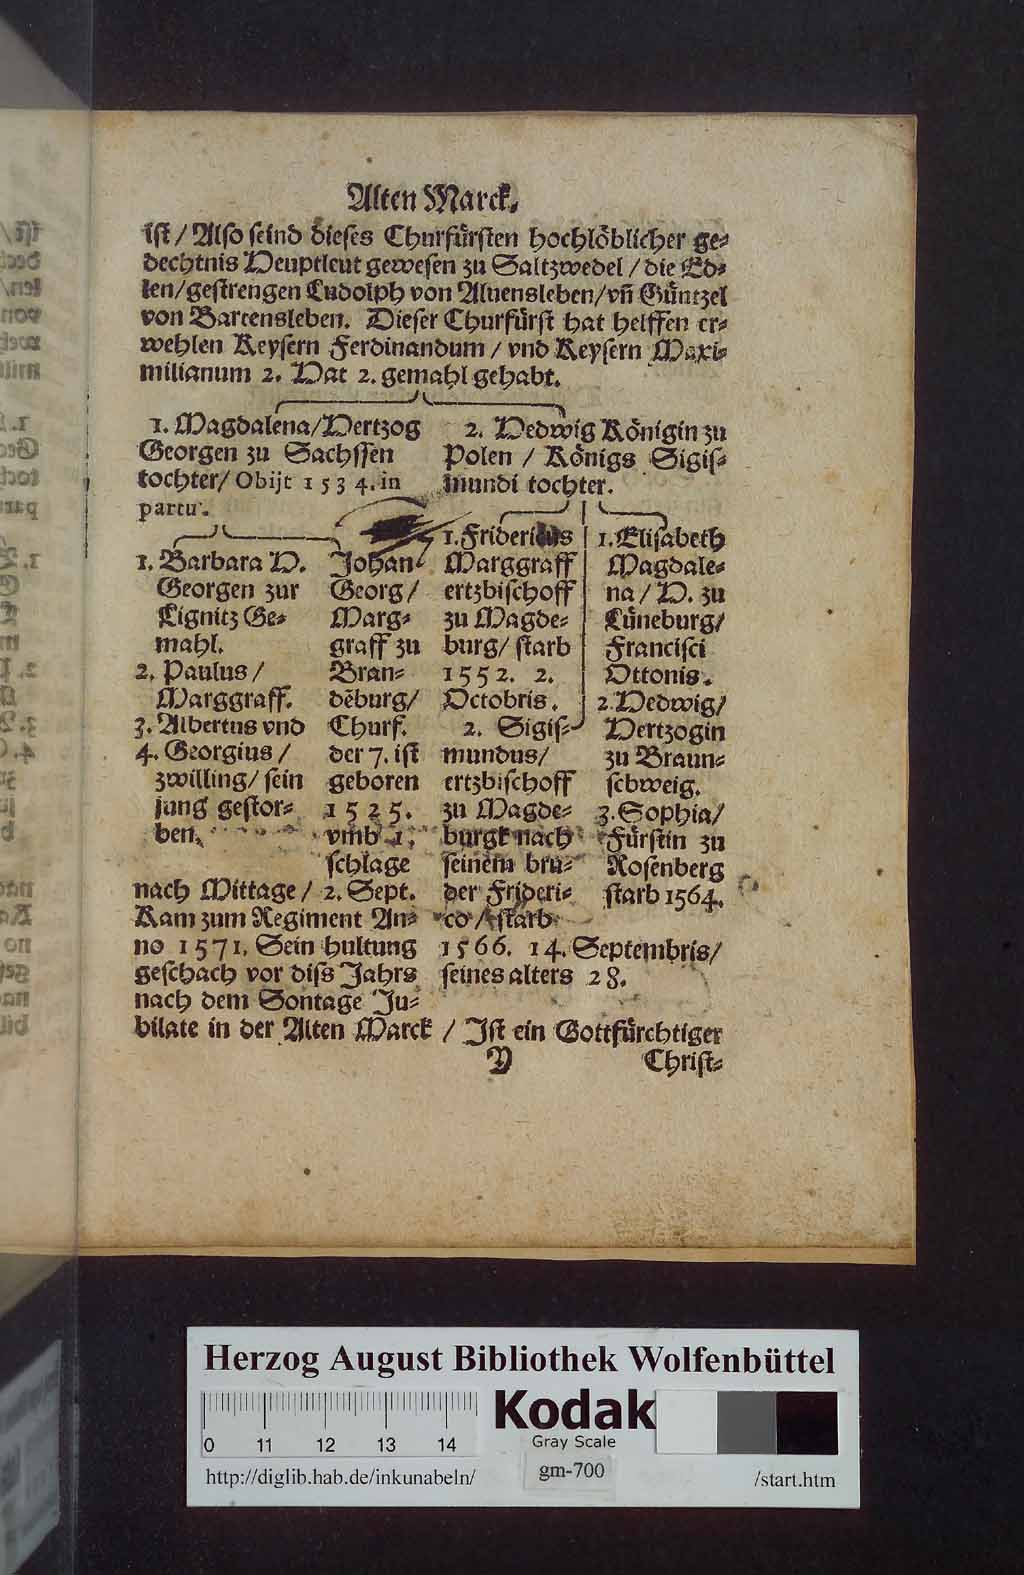 Alten Marck.
ist / Also seind dieses Churfürsten hochlöblicher ge-
dechtnis Heuptleut gewesen zu Saltzwedel / die Ed-
len / gestrengen Ludolph von Aluensleben / vñ Güntzel
von Bartensleben. Dieser Churfürst hat helffen er-
wehlen Keysern Ferdinandum / vnd Keysern Maxi-
milianum 2. Hat 2. gemahl gehabt.
1. Magdalena / Hertzog
Georgen zu Sachssen
tochter / Obijt 1534. in
partu.
2. Hedwig Königin zu
Polen / Königs Sigis-
mundi tochter.
1. Barbara H.
Georgen zur
Lignitz Ge-
mahl.
2. Paulus /
Marggraff.
3. Albertus vnd
4. Georgius /
zwilling / sein
jung gestor-
ben.
Johan
Georg /
Marg-
graff zu
Bran-
dēburg /
Churf.
der 7. ist
geboren
1525.
vmb 1.
schlage
nach Mittage / 2. Sept.
Kam zum Regiment An-
no 1571. Sein hultung
geschach vor diss Jahrs
nach dem Sontage Ju-
1. Fridericus
Marggraff
ertzbischoff
zu Magde-
burg / starb
1552. 2.
Octobris.
2. Sigis-
mundus /
ertzbischoff
zu Magde-
burgk nach
seinem bru-
der Frideri-
co / starb
1566. 14. Septembris /
seines alters 28.
1. Elisabeth
Magdale-
na / H. zu
Lüneburg /
Francisci
Ottonis.
2. Hedwig /
Hertzogin
zu Braun-
schweig.
3. Sophia /
Fürstin zu
Rosenberg
starb 1564.
bilate in der Alten Marck / Ist ein Gottfürchtiger
D Christ-
Herzog August Bibliothek Wolfenbüttel
0 11 12 13 14
Kodak
Gray Scale
http://diglib.hab.de/inkunabeln/
gm-700
/start.htm